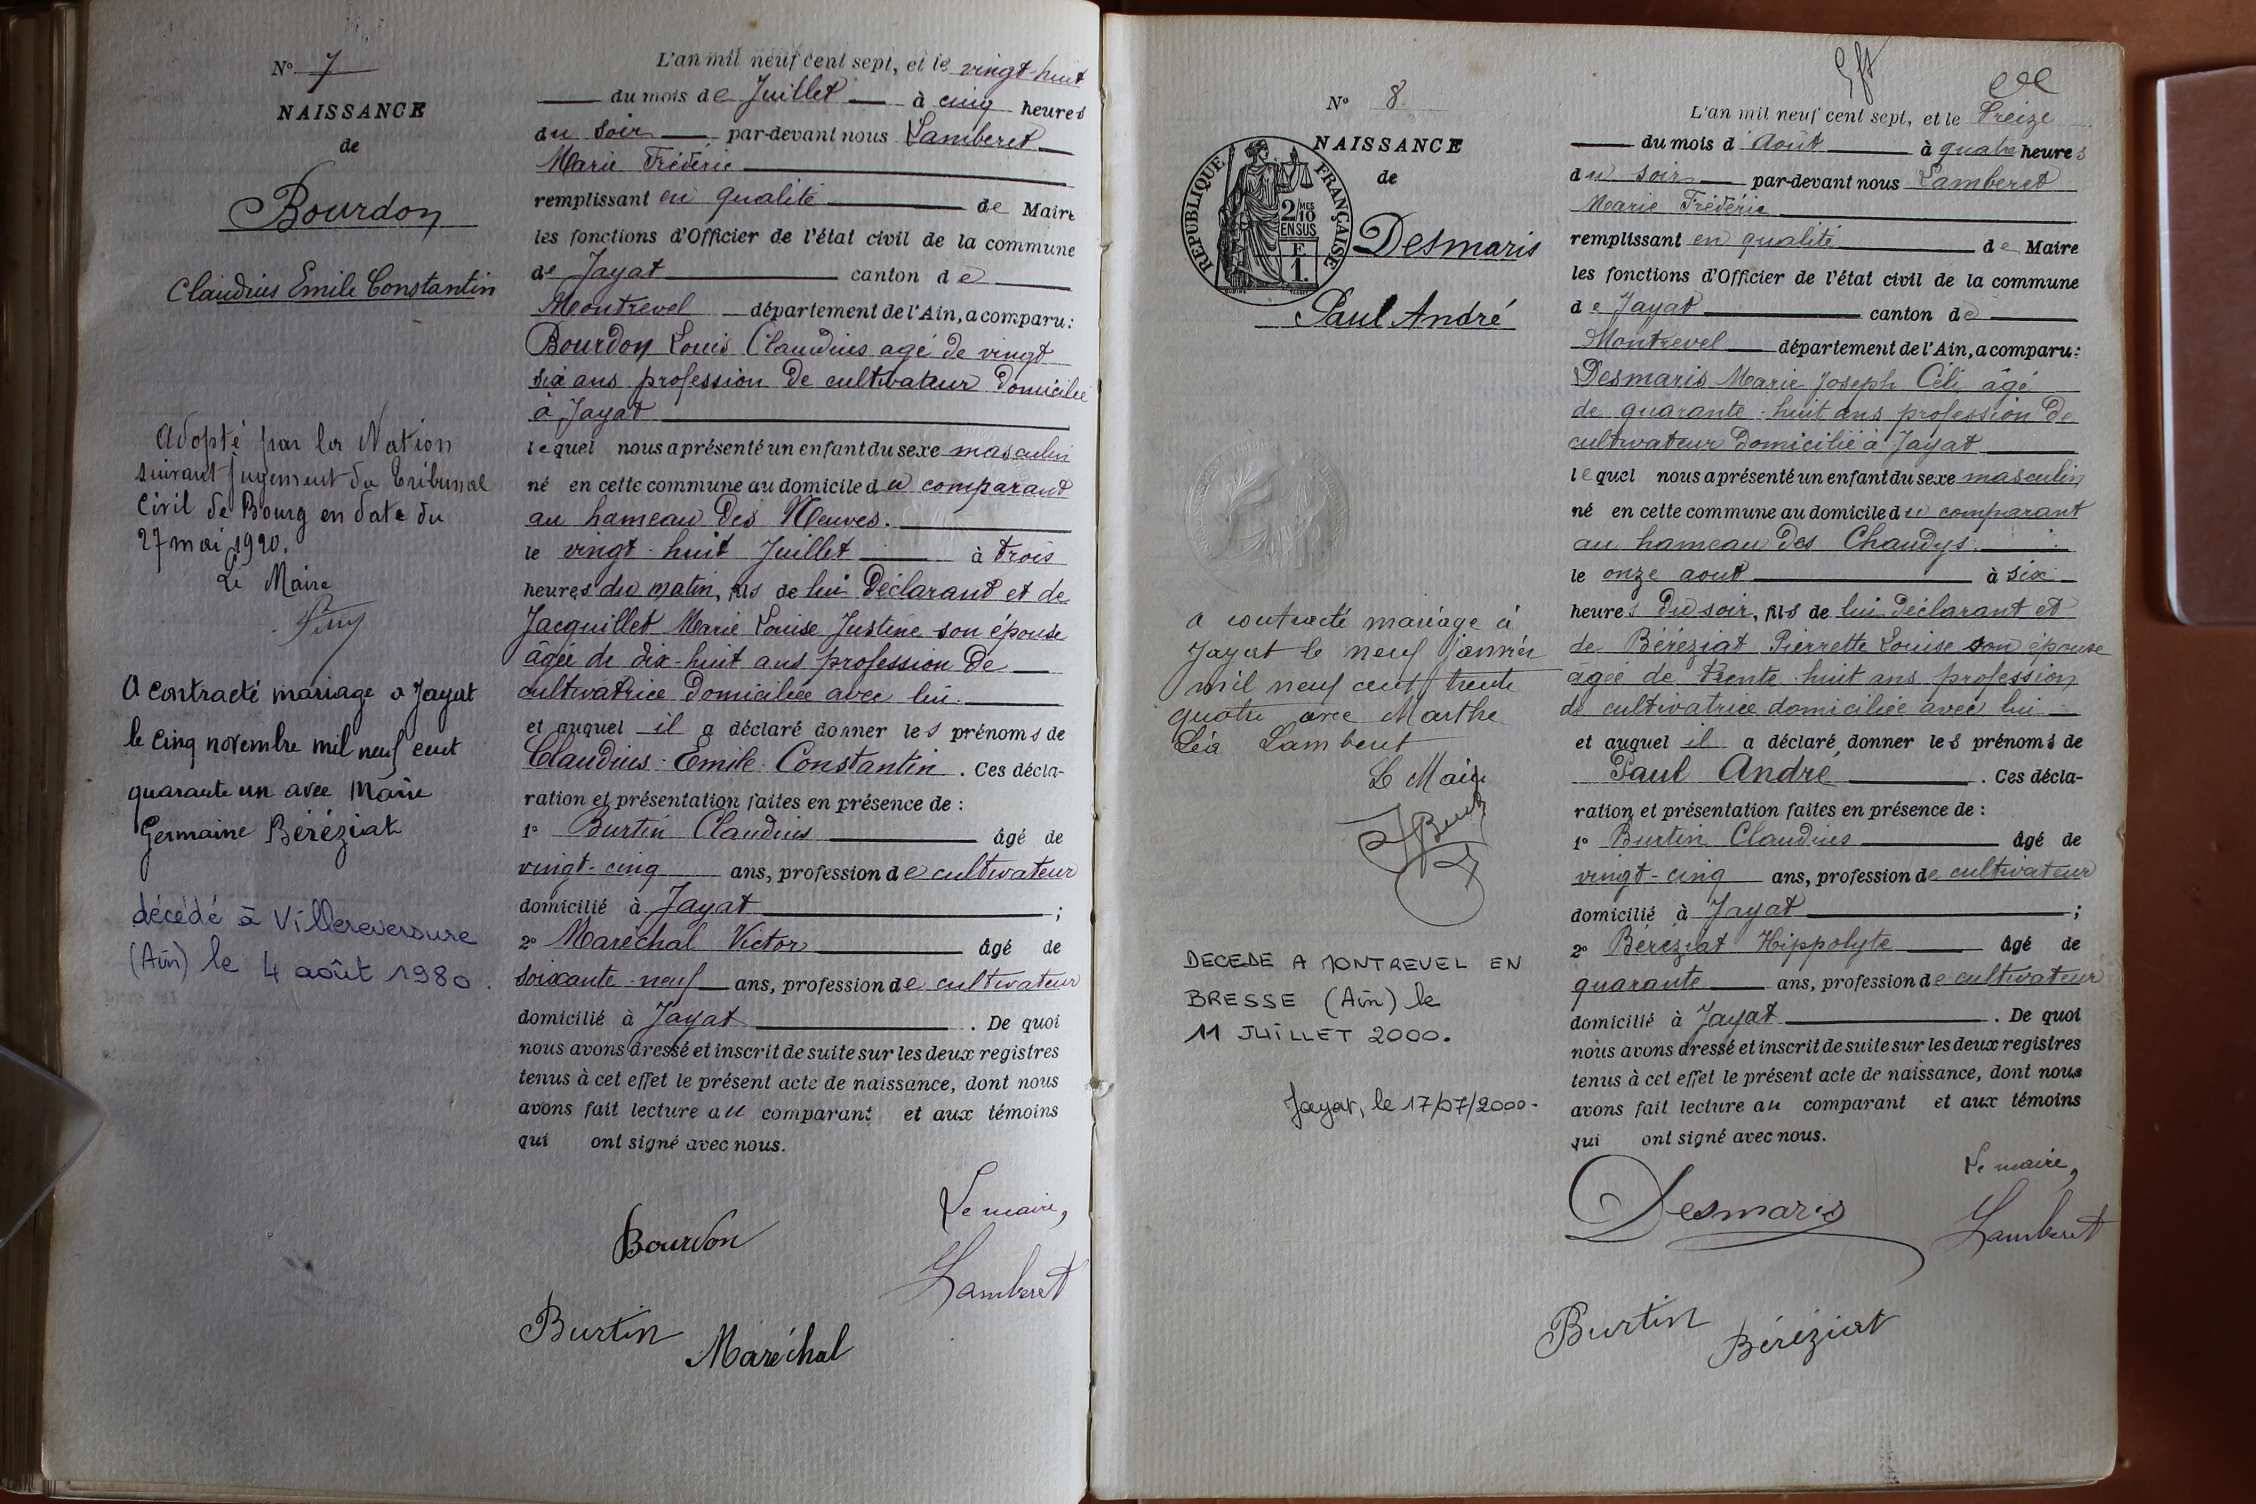 N° 7
NAISSANCE
de
Bourdon
Claudius Emile Constantin
Adopté par la Nation
suivant jugement du Tribunal
Civil de Bourg en date du
27 mai 1920.
Le Maire
A contracté mariage à Jayat
le cinq novembre mil neuf cent
quarante un avec Marie
Germaine Béréziat
décédé à Villereversure
(Ain) le 4 août 1980.
L'an mil neuf cent sept, et le vingt-huit
du mois de Juillet à cinq heures
du soir par-devant nous Lamberet
Marie Frédéric
remplissant en qualité de Maire
les fonctions d'Officier de l'état civil de la commune
de Jayat canton de
Montrevel département de l'Ain, a comparu:
Bourdon Louis Claudius agé de vingt
six ans profession de cultivateur domicilié
à Jayat
lequel nous a présenté un enfant du sexe masculin
né en cette commune au domicile du comparant
au hameau des Neuves.
le vingt-huit Juillet à trois
heures du matin, fils de lui Déclarant et de
Jacquillet Marie Louise Justine son épouse
agée de dix-huit ans profession de
cultivatrice domiciliée avec lui.
et auquel il a déclaré donner les prénoms de
Claudius Emile Constantin. Ces décla-
ration et présentation faites en présence de :
1° Burtin Claudius âgé de
vingt-cinq ans, profession de cultivateur
domicilié à Jayat ;
2° Maréchal Victor âgé de
soixante-neuf ans, profession de cultivateur
domicilié à Jayat . De quoi
nous avons dressé et inscrit de suite sur les deux registres
tenus à cet effet le présent acte de naissance, dont nous
avons fait lecture au comparant et aux témoins
qui ont signé avec nous.
Le maire,
Bourdon
Lamberet
Burtin
Maréchal
N° 8
NAISSANCE
de
REPUBLIQUE FRANÇAISE
2/10 MES
EN SUS
F
1.
Desmaris
Paul André
a contracté mariage à
Jayat le neuf janvier
mil neuf cent trente
quatre avec Marthe
Léa Lamberet
Le Maire
DECEDE A MONTREVEL EN
BRESSE (Ain) le
11 JUILLET 2000.
Jayat, le 17/07/2000.
L'an mil neuf cent sept, et le Treize
du mois d'Août à quatre heures
du soir par-devant nous Lamberet
Marie Frédéric
remplissant en qualité de Maire
les fonctions d'Officier de l'état civil de la commune
de Jayat canton de
Montrevel département de l'Ain, a comparu:
Desmaris Marie Joseph Céli âgé
de quarante-huit ans profession de
cultivateur domicilié à Jayat
lequel nous a présenté un enfant du sexe masculin
né en cette commune au domicile du comparant
au hameau des Chaudys.
le onze aout à six
heures du soir, fils de lui déclarant et
de Béréziat Pierrette Louise son épouse
agée de trente-huit ans profession
de cultivatrice domiciliée avec lui
et auquel il a déclaré donner les prénoms de
Paul André . Ces décla-
ration et présentation faites en présence de :
1° Burtin Claudius âgé de
vingt-cinq ans, profession de cultivateur
domicilié à Jayat ;
2° Béréziat Hippolyte âgé de
quarante ans, profession de cultivateur
domicilié à Jayat . De quoi
nous avons dressé et inscrit de suite sur les deux registres
tenus à cet effet le présent acte de naissance, dont nous
avons fait lecture au comparant et aux témoins
qui ont signé avec nous.
Le maire,
Desmaris
Lamberet
Burtin
Béréziat